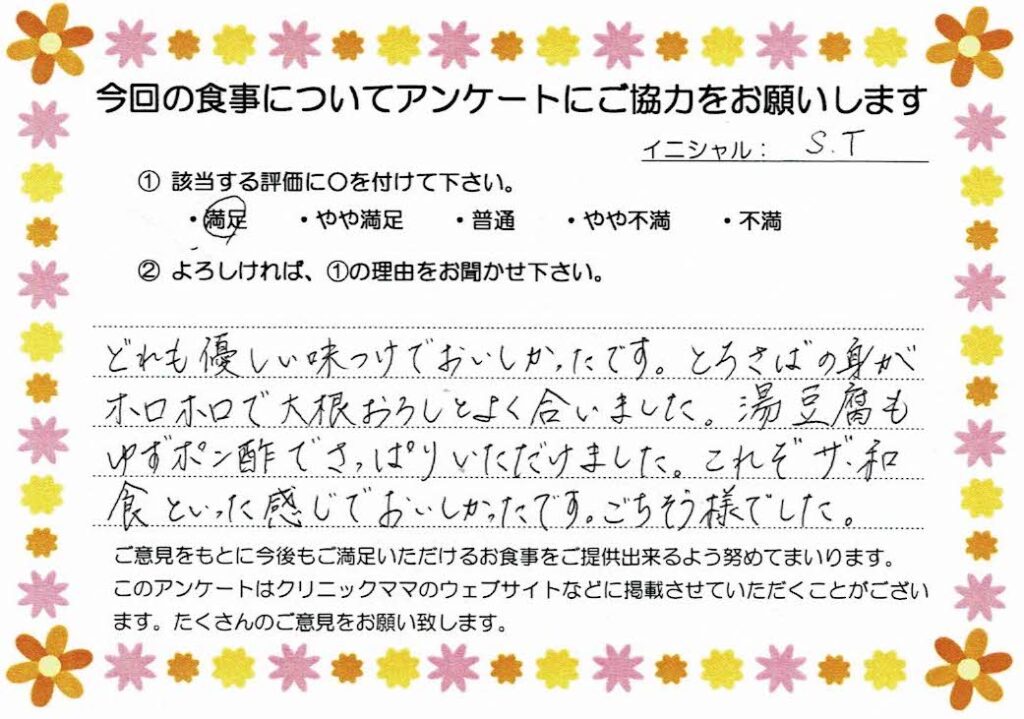 今回の食事についてアンケートにご協力をお願いします
イニシャル： S.T
① 該当する評価に〇を付けて下さい。
・満足 ・やや満足 ・普通 ・やや不満 ・不満
② よろしければ、①の理由をお聞かせ下さい。
どれも優しい味つけでおいしかったです。とろさばの身が
ホロホロで大根おろしとよく合いました。湯豆腐も
ゆずポン酢でさっぱりいただけました。これぞザ・和
食といった感じでおいしかったです。ごちそう様でした。
ご意見をもとに今後もご満足いただけるお食事をご提供出来るよう努めてまいります。
このアンケートはクリニックママのウェブサイトなどに掲載させていただくことがござい
ます。たくさんのご意見をお願い致します。